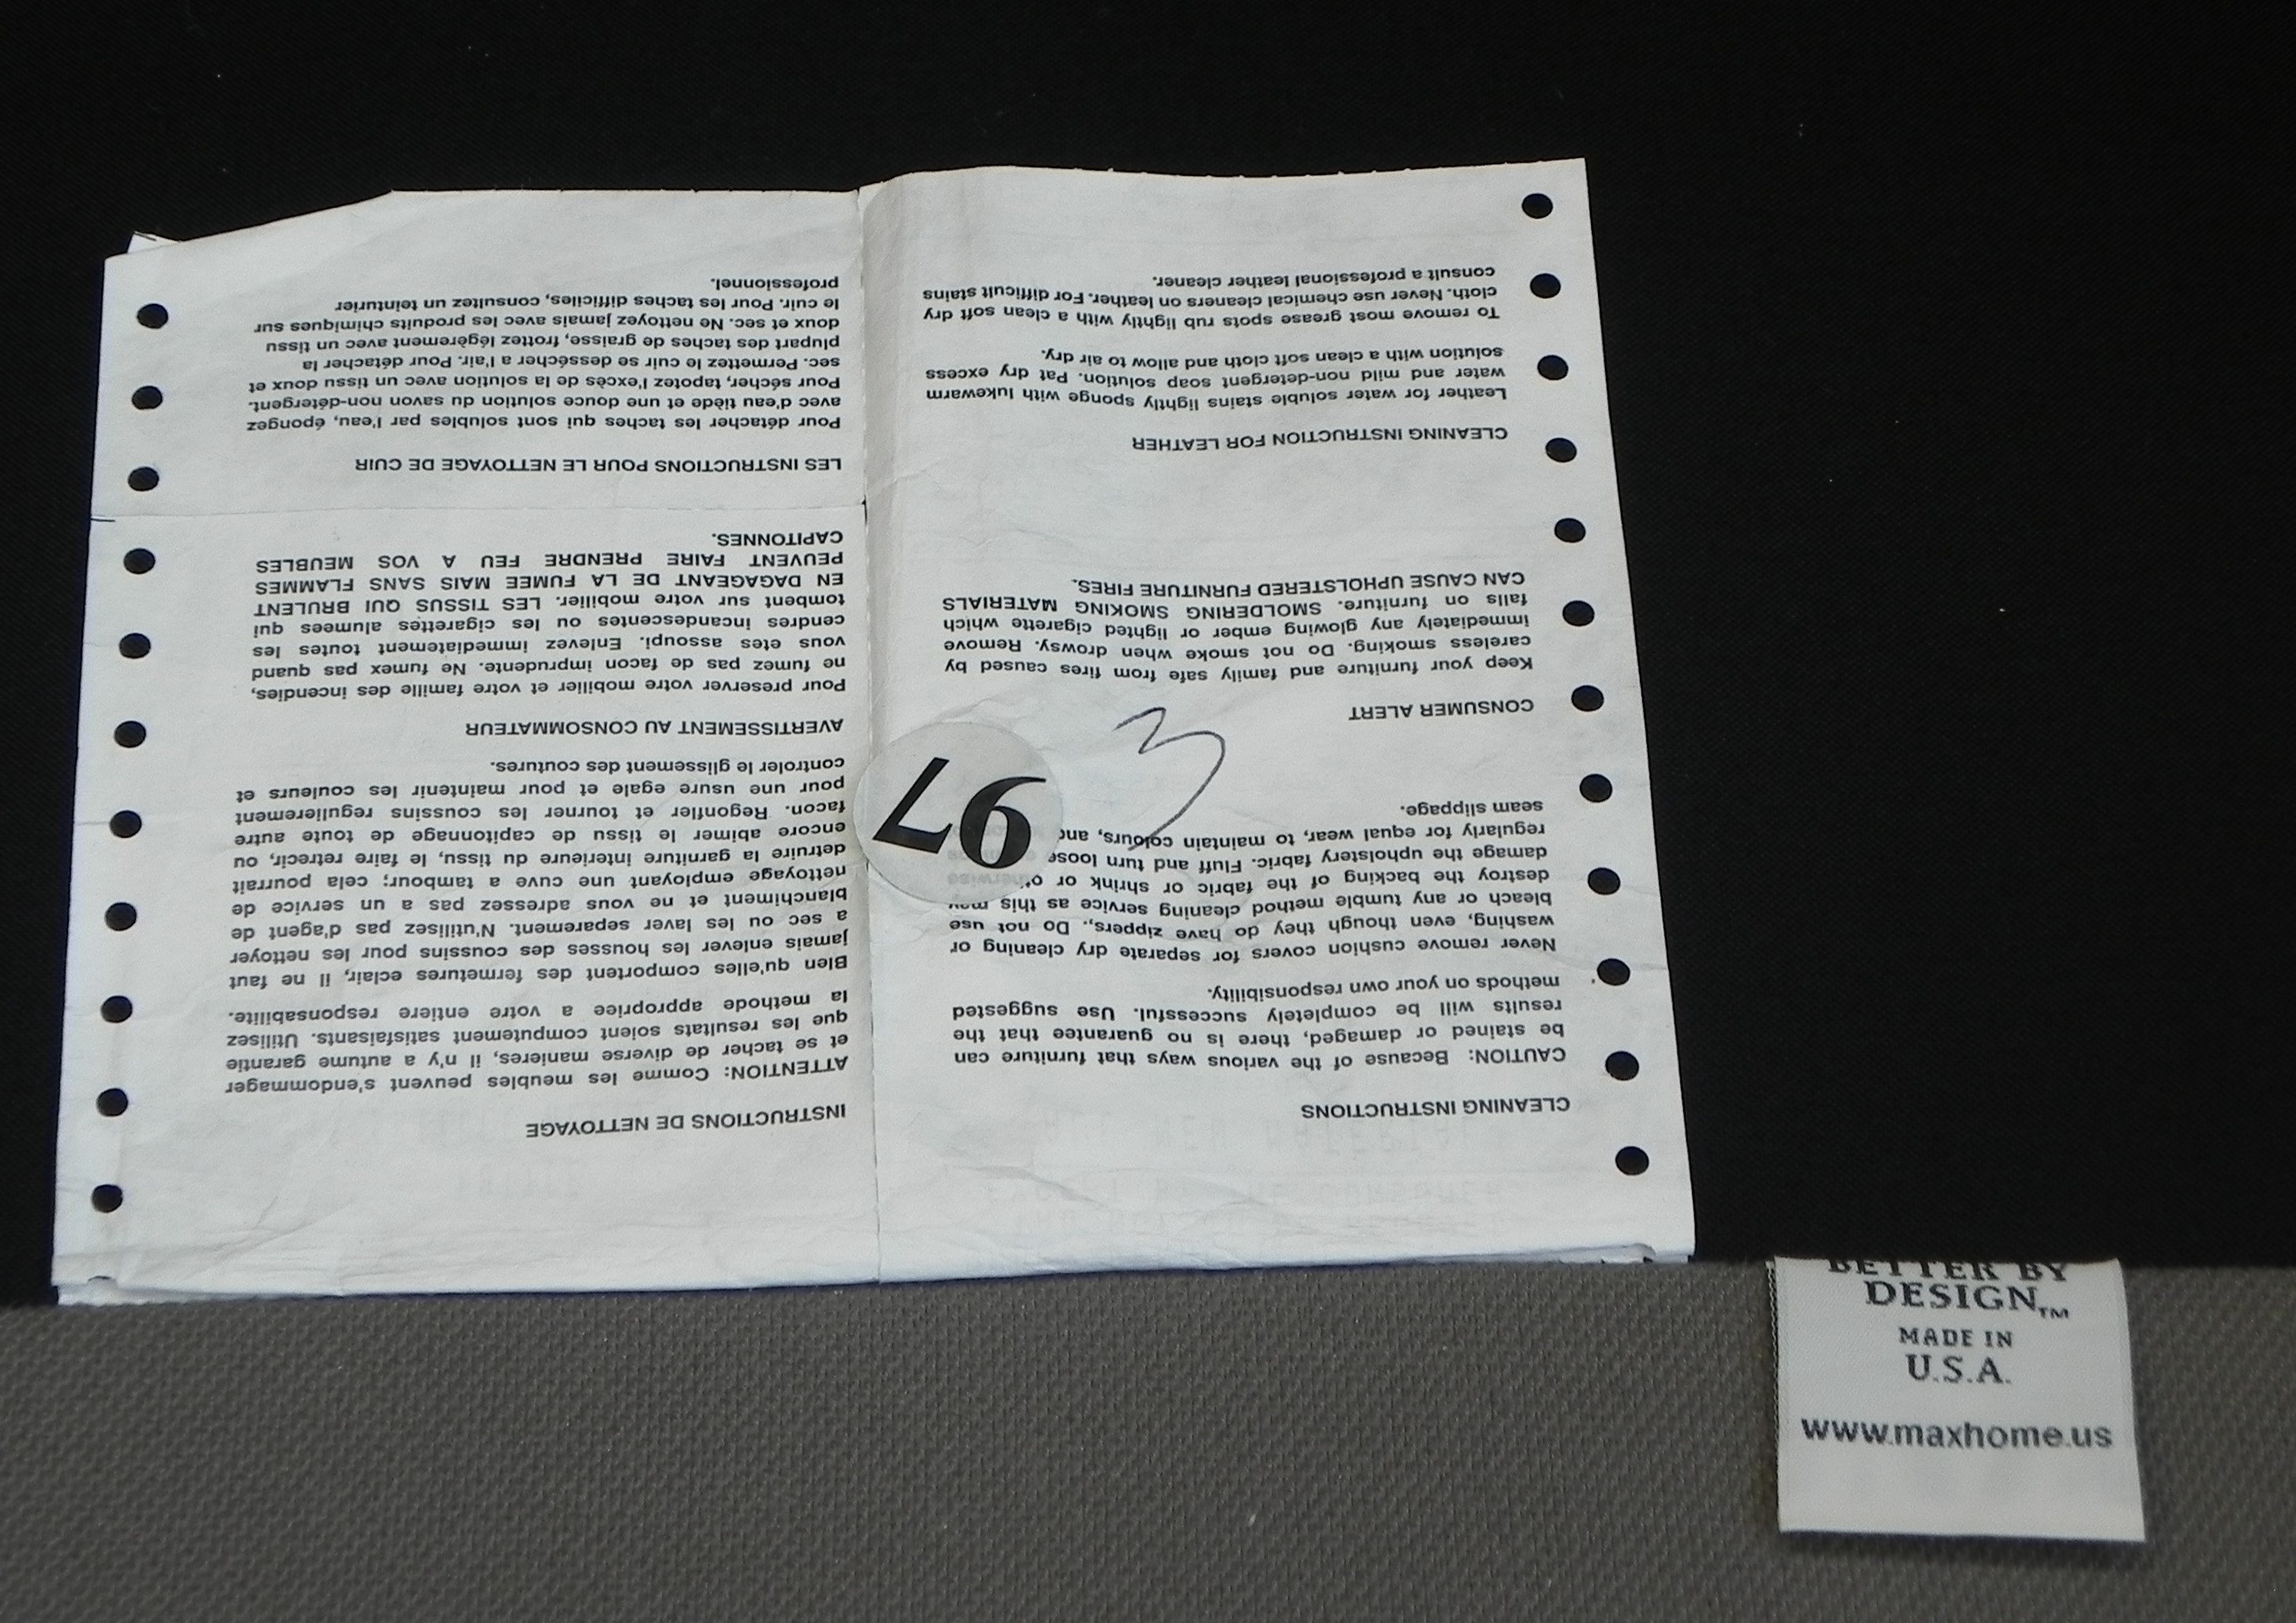 CLEANING INSTRUCTIONS
CAUTION: Because of the various ways that furniture can
be stained or damaged, there is no guarantee that the
results will be completely successful. Use suggested
methods on your own responsibility.
Never remove cushion covers for separate dry cleaning or
washing, even though they do have zippers,. Do not use
bleach or any tumble method cleaning service as this may
destroy the backing of the fabric or shrink or otherwise
damage the upholstery fabric. Fluff and turn loose
regularly for equal wear, to maintain colours, and
seam slippage.
CONSUMER ALERT
Keep your furniture and family safe from fires caused by
careless smoking. Do not smoke when drowsy. Remove
immediately any glowing ember or lighted cigarette which
falls on furniture. SMOLDERING SMOKING MATERIALS
CAN CAUSE UPHOLSTERED FURNITURE FIRES.
CLEANING INSTRUCTION FOR LEATHER
Leather for water soluble stains lightly sponge with lukewarm
water and mild non-detergent soap solution. Pat dry excess
solution with a clean soft cloth and allow to air dry.
To remove most grease spots rub lightly with a clean soft dry
cloth. Never use chemical cleaners on leather. For difficult stains
consult a professional leather cleaner.
3
97
INSTRUCTIONS DE NETTOYAGE
ATTENTION: Comme les meubles peuvent s'endommager
et se tacher de diverse manieres, il n'y a autume garantie
que les resultats soient computement satisfaisants. Utilisez
la methode appropriee a votre entiere responsabilite.
Bien qu'elles comportent des fermetures eclair, il ne faut
jamais enlever les housses des coussins pour les nettoyer
a sec ou les laver separement. N'utilisez pas d'agent de
blanchiment et ne vous adressez pas a un service de
nettoyage employant une cuve a tambour; cela pourrait
detruire la garniture interieure du tissu, le faire retrecir, ou
encore abimer le tissu de capitonnage de toute autre
facon. Regonfler et tourner les coussins regulierement
pour une usure egale et pour maintenir les couleurs et
controler le glissement des coutures.
AVERTISSEMENT AU CONSOMMATEUR
Pour preserver votre mobilier et votre famille des incendies,
ne fumez pas de facon imprudente. Ne fumex pas quand
vous etes assoupi. Enlevez immediatement toutes les
cendres incandescentes ou les cigarettes alumees qui
tombent sur votre mobilier. LES TISSUS QUI BRULENT
EN DAGAGEANT DE LA FUMEE MAIS SANS FLAMMES
PEUVENT FAIRE PRENDRE FEU A VOS MEUBLES
CAPITONNES.
LES INSTRUCTIONS POUR LE NETTOYAGE DE CUIR
Pour détacher les taches qui sont solubles par l'eau, épongez
avec d'eau tiède et une douce solution du savon non-détergent.
Pour sécher, tapotez l'excès de la solution avec un tissu doux et
sec. Permettez le cuir se dessécher a l'air. Pour détacher la
plupart des taches de graisse, frottez légèrement avec un tissu
doux et sec. Ne nettoyez jamais avec les produits chimiques sur
le cuir. Pour les taches difficiles, consultez un teinturier
professionnel.
BETTER BY
DESIGN™
MADE IN
U.S.A.
www.maxhome.us